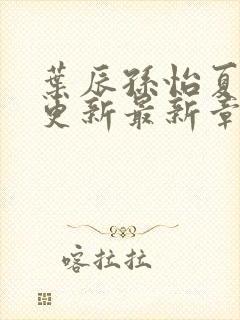 葉辰孫怡夏
更新最新章
喀拉拉